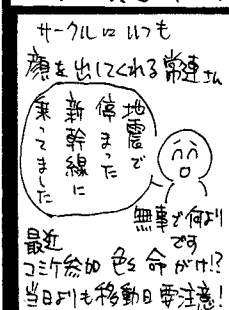 サークルにいつも
顔を出してくれる常連さん
地震で
停まった
新幹線に
乗ってました
無事で何より
です
最近
コミケ参加色々命がけ!?
当日よりも移動日要注意!